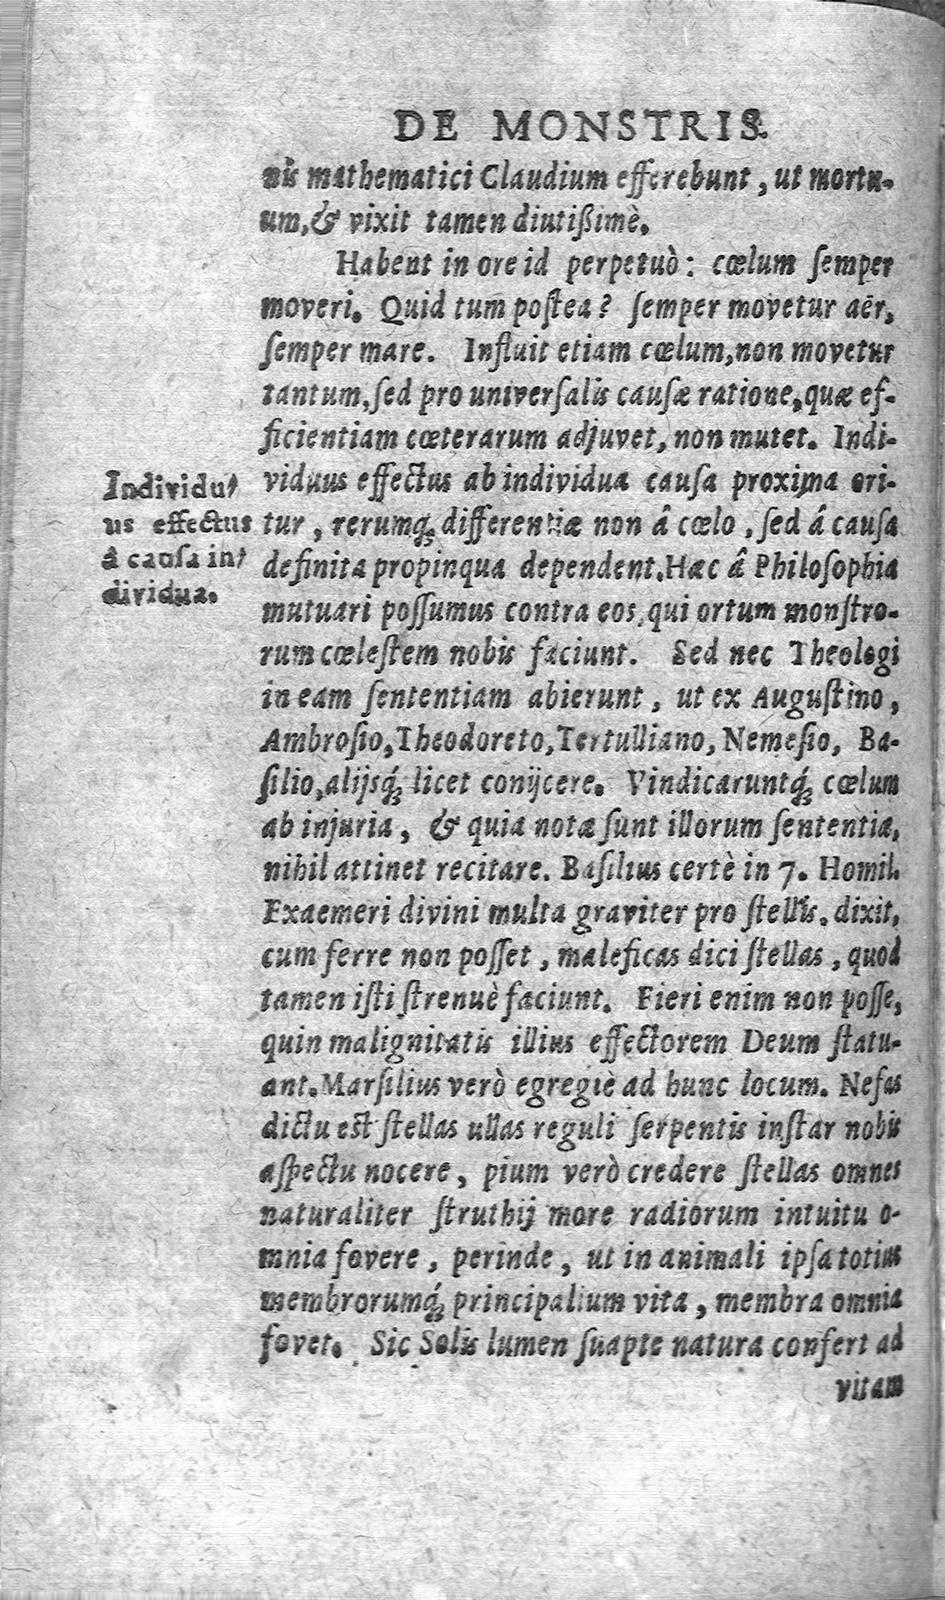 DE MONSTRIS.
nis mathematici Claudium efferebunt, ut mortu-
um, & vixit tamen diutißimè.
Habent in ore id perpetuò: cœlum ſemper
moveri. Quid tum poſtea? ſemper movetur aër,
ſemper mare. Influit etiam cœlum, non movetur
tantum, ſed pro univerſalis cauſæ ratione, quæ ef-
ficientiam cœterarum adjuvet, non mutet. Indi-
viduus effectus ab individua cauſa proxima ori-
tur, rerumq́; differentiæ non â cœlo, ſed â cauſa
definita propinqua dependent. Hæc â Philoſophia
mutuari poſſumus contra eos, qui ortum monſtro-
rum cœleſtem nobis faciunt. Sed nec Theologi
in eam ſententiam abierunt, ut ex Auguſtino,
Ambroſio, Theodoreto, Tertulliano, Nemeſio, Ba-
ſilio, alijsq́; licet conijcere. Vindicaruntq́; cœlum
ab injuria, & quia notæ ſunt illorum ſententiæ,
nihil attinet recitare. Baſilius certè in 7. Homil.
Exaemeri divini multa graviter pro ſtellis. dixit,
cum ferre non poſſet, maleficas dici ſtellas, quod
tamen iſti ſtrenuè faciunt. Fieri enim non poſſe,
quin malignitatis illius effectorem Deum ſtatu-
ant. Marſilius verò egregiè ad hunc locum. Nefas
dictu eſt ſtellas ullas reguli ſerpentis inſtar nobis
aſpectu nocere, pium verò credere ſtellas omnes
naturaliter ſtruthij more radiorum intuitu o-
mnia fovere, perinde, ut in animali ipſa totius
membrorumq́; principalium vita, membra omnia
fovet. Sic Solis lumen ſuapte natura confert ad
vitam
Individu-
us effectus
â cauſa in-
dividua.